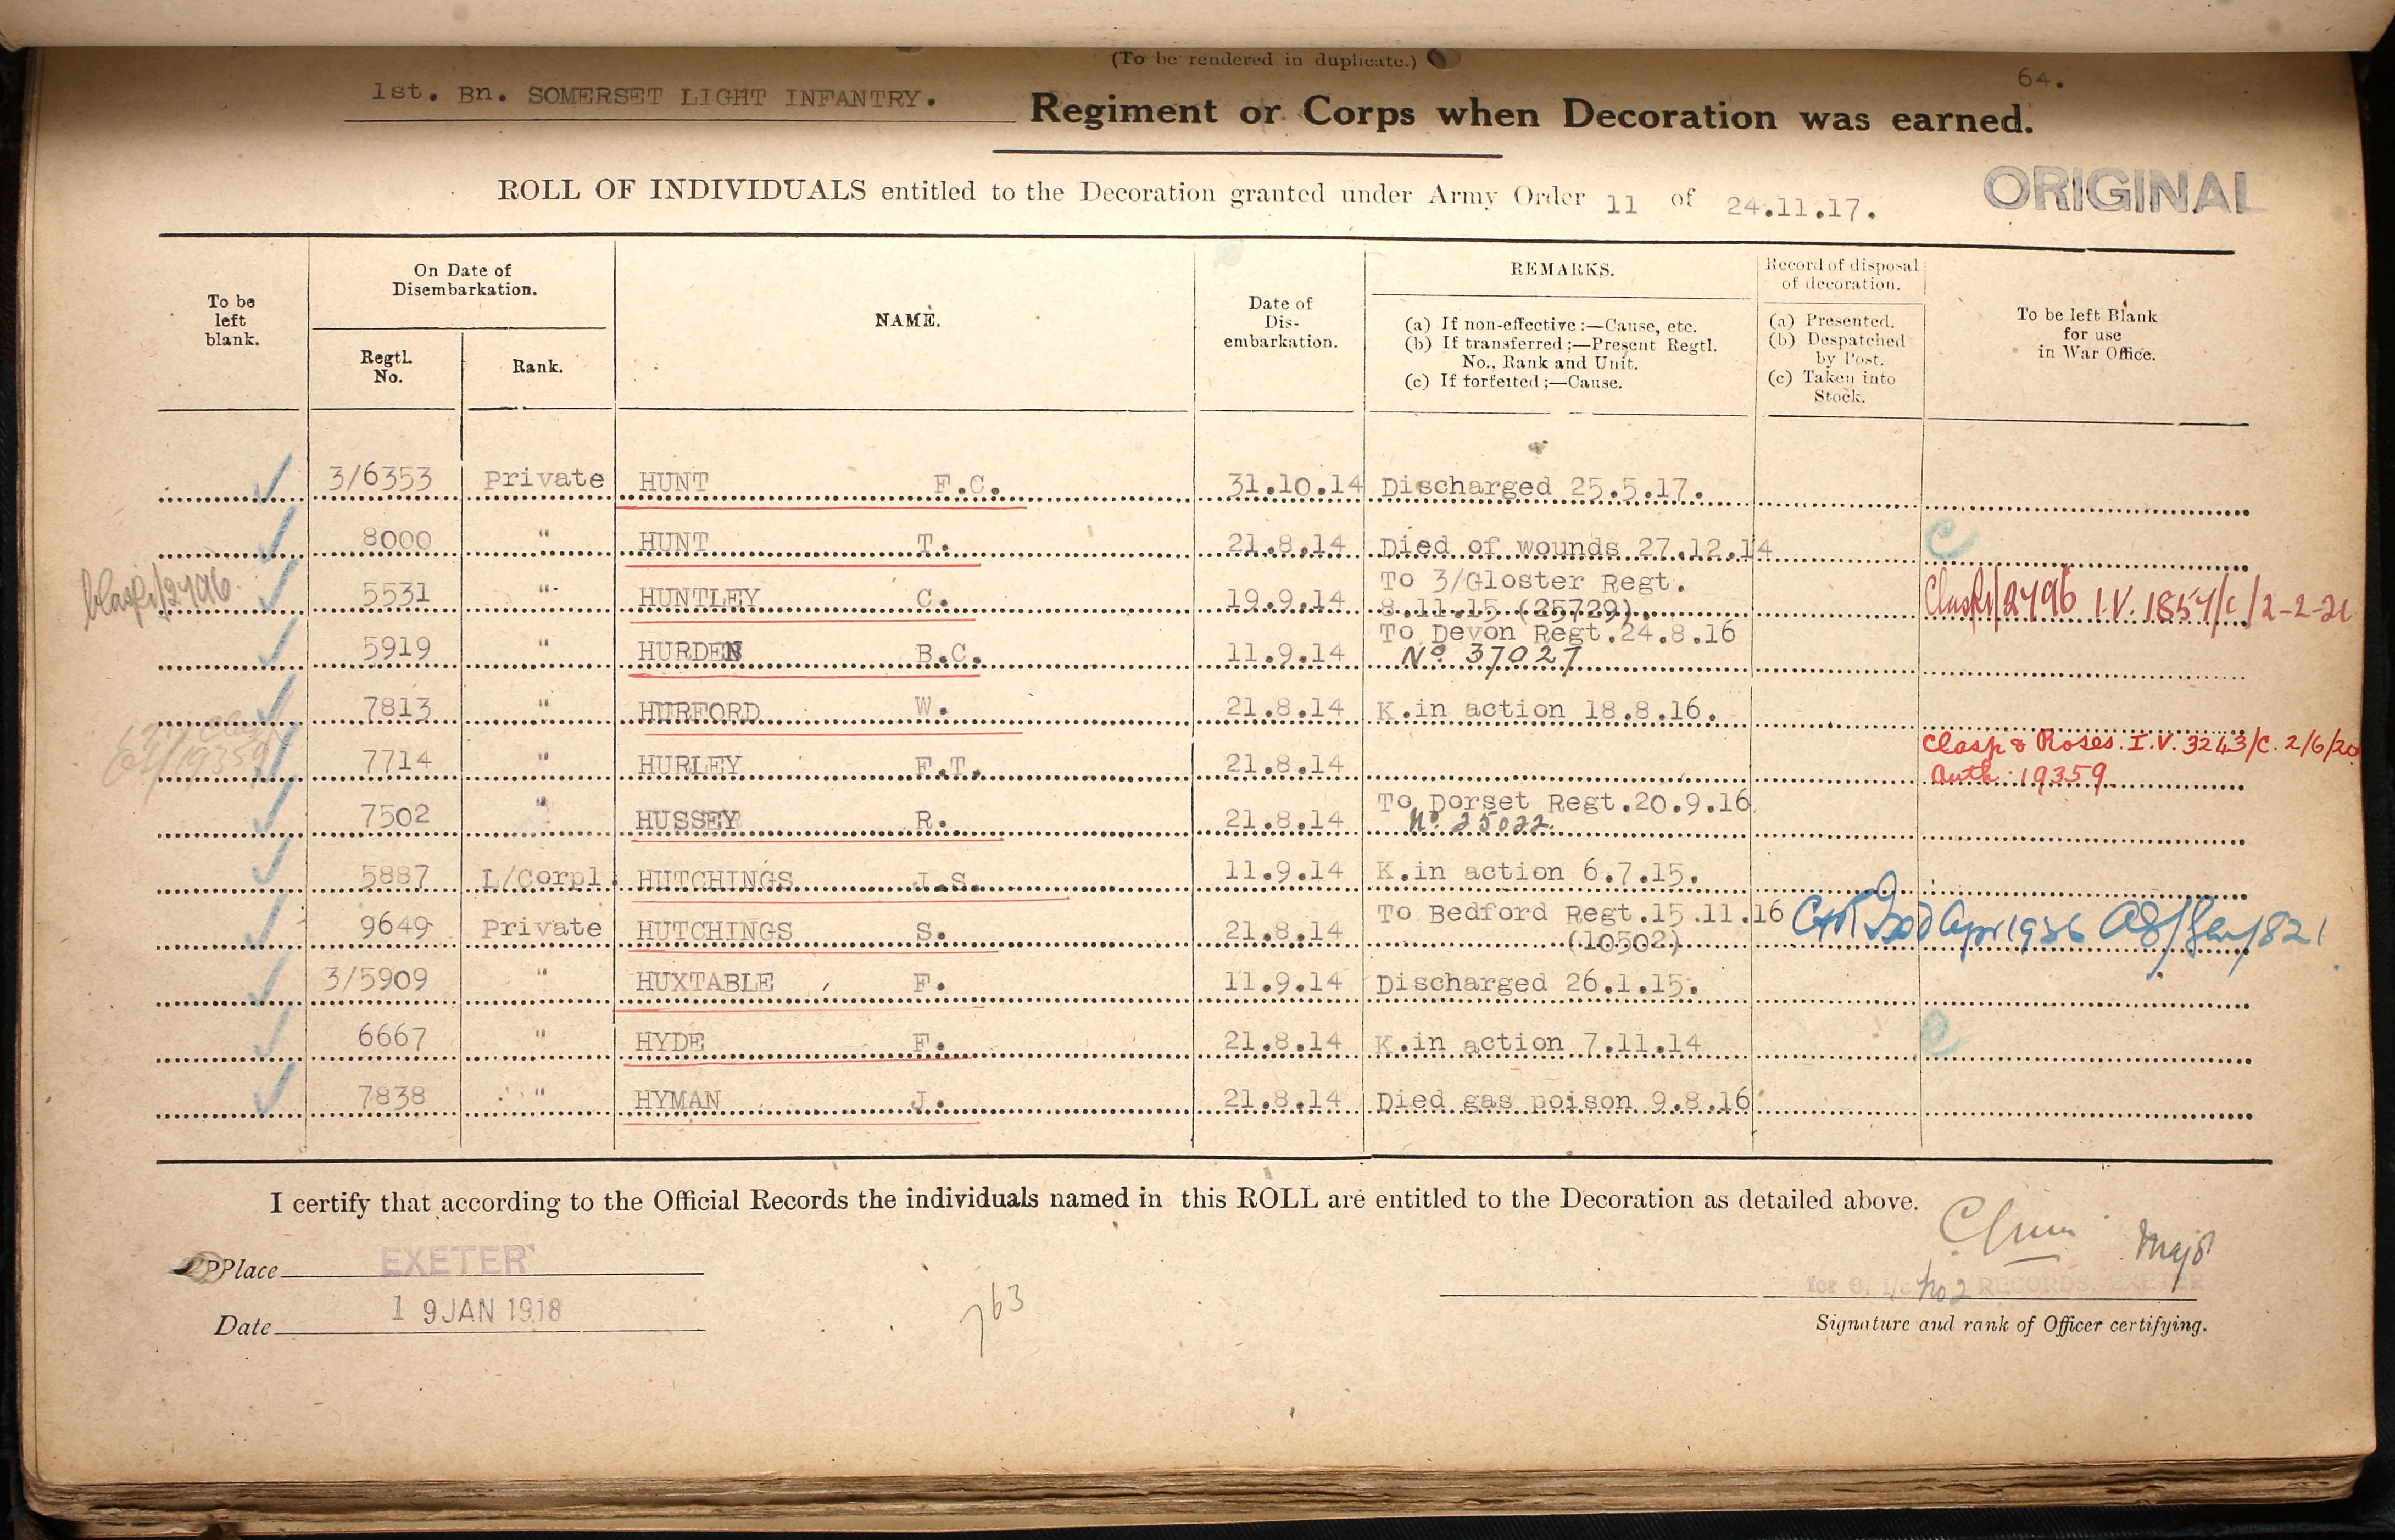 (To be rendered in duplicate.)
64.
1st. Bn. SOMERSET LIGHT INFANTRY. Regiment or Corps when Decoration was earned.
ROLL OF INDIVIDUALS entitled to the Decoration granted under Army Order 11 of 24.11.17.
ORIGINAL
To be left blank.
On Date of Disembarkation.
Regtl. No.
Rank.
NAME.
Date of Dis-embarkation.
REMARKS.
(a) If non-effective:—Cause, etc.
(b) If transferred;—Present Regtl. No., Rank and Unit.
(c) If forfeited;—Cause.
Record of disposal of decoration.
(a) Presented.
(b) Despatched by Post.
(c) Taken into Stock.
To be left Blank for use in War Office.
3/6353 Private HUNT F.C. 31.10.14 Discharged 25.5.17.
8000 " HUNT T. 21.8.14 Died of wounds 27.12.14 C
5531 " HUNTLEY C. 19.9.14 To 3/Gloster Regt. 8.11.15 (25729). 2496 I.V. 1854/C/2-2-21
5919 " HURDEN B.C. 11.9.14 To Devon Regt. 24.8.16 No. 37027
7813 " HURFORD W. 21.8.14 K.in action 18.8.16.
7714 " HURLEY F.T. 21.8.14 Clasp & Roses. I.V. 3243/C. 2/6/20 Auth: 19359
7502 " HUSSEY R. 21.8.14 To Dorset Regt. 20.9.16 No. 25022
5887 L/Corpl. HUTCHINGS J.S. 11.9.14 K.in action 6.7.15.
9649 Private HUTCHINGS S. 21.8.14 To Bedford Regt. 15.11.16 (10502) Apr 1936
3/5909 " HUXTABLE F. 11.9.14 Discharged 26.1.15.
6667 " HYDE F. 21.8.14 K.in action 7.11.14 C
7838 " HYMAN J. 21.8.14 Died gas poison 9.8.16
I certify that according to the Official Records the individuals named in this ROLL are entitled to the Decoration as detailed above.
Place EXETER
Major
for O. i/c No 2 RECORDS, EXETER
Date 19 JAN 1918
763
Signature and rank of Officer certifying.